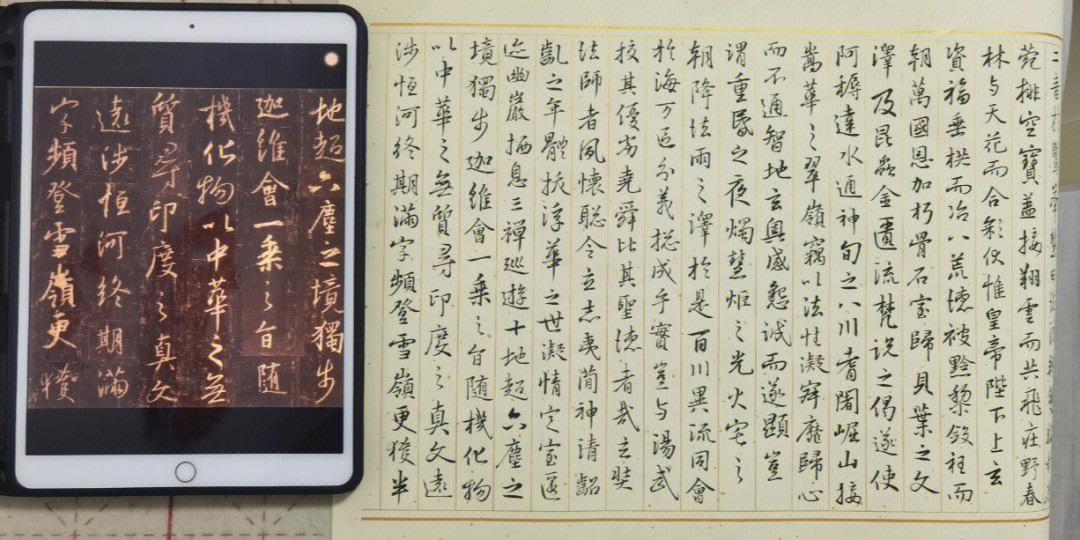 二音於鷲峯慧日法流轉雙輪於鹿
菀排空寶蓋接翔雲而共飛莊野春
林与天花而合彩伏惟皇帝陛下上玄
資福垂拱而治八荒德被黔黎斂衽而
朝萬國恩加朽骨石室歸貝葉之文
澤及昆蟲金匱流梵說之偈遂使
阿耨達水通神甸之八川耆闍崛山接
嵩華之翠嶺竊以法性凝寂靡歸心
而不通智地玄奧感懇誠而遂顯豈
謂重昏之夜燭慧炬之光火宅之
朝降法雨之澤於是百川異流同會
於海万區分義總成乎實豈与湯武
校其優劣堯舜比其聖德者哉玄奘
法師者夙懷聰令立志夷簡神清齠
齔之年體拔浮華之世凝情定室匿
迹幽巖栖息三禪巡遊十地超六塵之
境獨步迦維會一乘之旨随機化物
以中華之無質尋印度之真文遠
涉恒河終期滿字頻登雪嶺更獲半
地超六塵之境獨步
迦維會一乘之旨随
機化物以中華之無
質尋印度之真文
遠涉恒河終期滿
字頻登雪嶺更獲